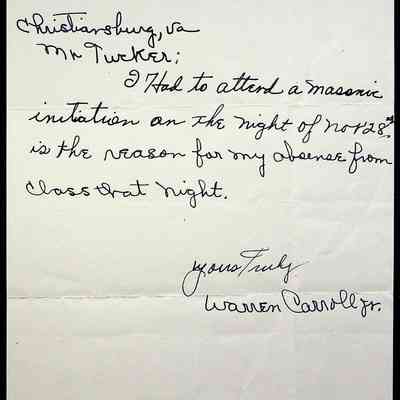 Christiansburg, Va
Mr Tucker;
I Had to attend a masonic
initiation on the night of Nov 28th
is the reason for my absense from
class that night.
yours Truly
Warren Carroll Jr.